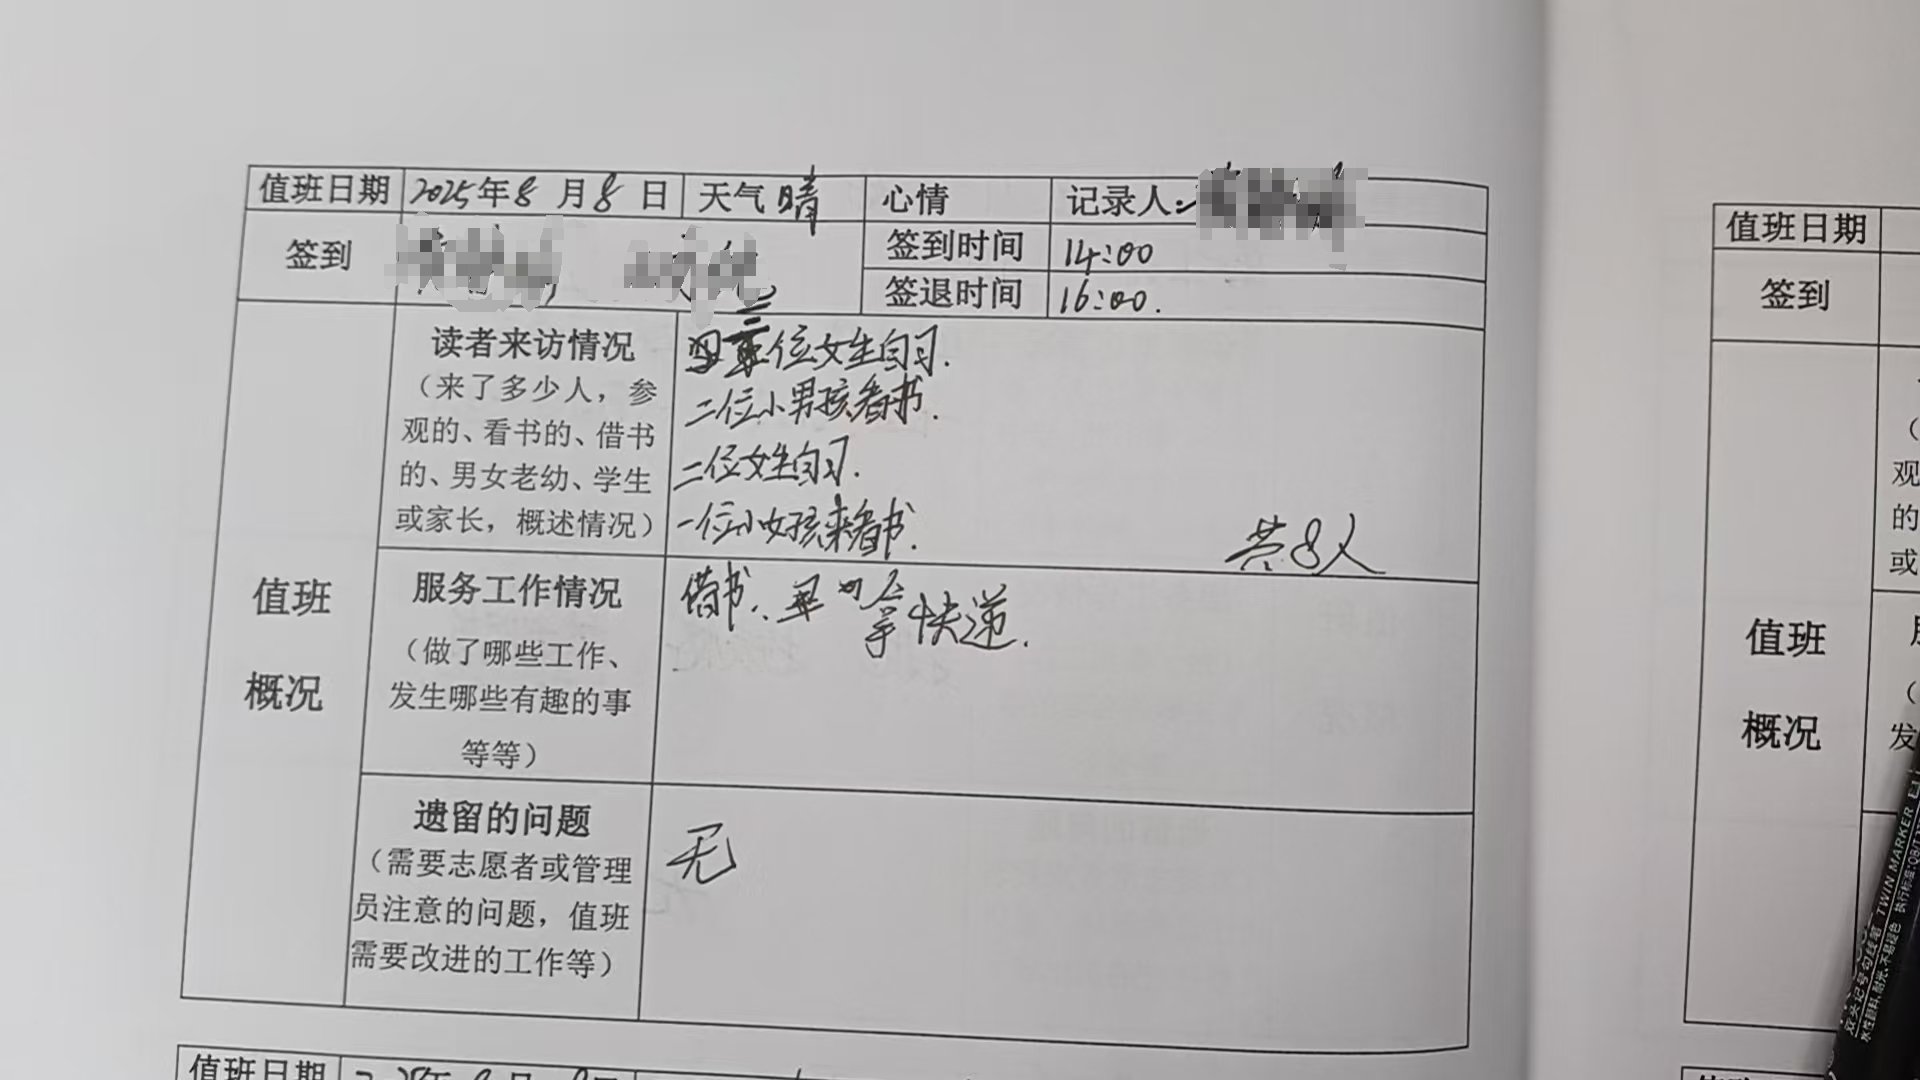 值班日期 2025年8月8日 天气 晴 心情 记录人:
签到 签到时间 14:00
签退时间 16:00.
读者来访情况
（来了多少人，参
观的、看书的、借书
的、男女老幼、学生
或家长，概述情况）
三位女生自习.
二位小男孩看书.
二位女生自习.
一位小女孩来看书.
共8人
值班
概况
服务工作情况
（做了哪些工作、
发生哪些有趣的事
等等）
借书、拿快递.
遗留的问题
（需要志愿者或管理
员注意的问题，值班
需要改进的工作等）
无
值班日期
值班日期
签到
值班
概况
（
观
的
或
（
发
双头记号勾线笔 TWIN MARKER
水性颜料、耐光、不易褪色